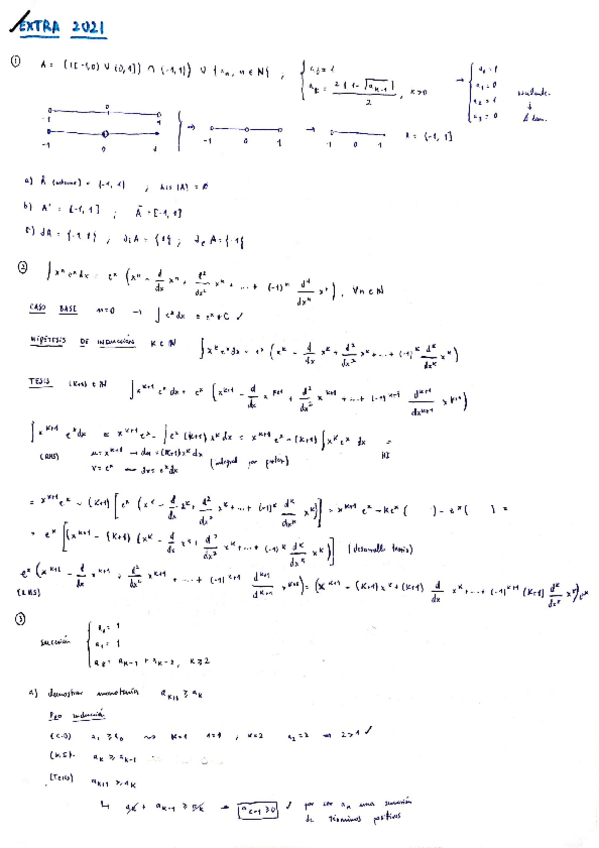 EXTRA 2021
① A = (([-1,0) ∪ (0,1]) ∩ (-1,1)) ∪ {x_n, n ∈ N},
a) Å (interior) = (-1, 1) ; Ais(A) = ∅
b) A' = [-1, 1] ; Ā = [-1, 1]
c) ∂A = {-1, 1} ; ∂_i A = {1} ; ∂_e A = {-1}
② ∫ x^n e^x dx = e^x (x^n - d/dx x^n + d²/dx² x^n + ... + (-1)^n d^n/dx^n x^n), ∀n ∈ N
CASO BASE n=0 → ∫ e^x dx = e^x + C ✓
HIPÓTESIS DE INDUCCIÓN K ∈ N ∫ x^k e^x dx = e^x (x^k - d/dx x^k + d²/dx² x^k + ... + (-1)^k d^k/dx^k x^k)
TESIS (k+1) ∈ N ∫ x^{k+1} e^x dx = e^x [x^{k+1} - d/dx x^{k+1} + d²/dx² x^{k+1} + ... + (-1)^{k+1} d^{k+1}/dx^{k+1} x^{k+1}]
∫ x^{k+1} e^x dx = x^{k+1} e^x - ∫ e^x (k+1) x^k dx = x^{k+1} e^x - (k+1) ∫ x^k e^x dx =
u = x^{k+1} → du = (k+1) x^k dx (integral por partes) HI
v = e^x dv = e^x dx
= x^{k+1} e^x - (k+1) [e^x (x^k - d/dx x^k + d²/dx² x^k + ... + (-1)^k d^k/dx^k x^k)] = x^{k+1} e^x - k e^x ( ) - e^x ( ) =
= e^x [x^{k+1} - (k+1) (x^k - d/dx x^k + d²/dx² x^k + ... + (-1)^k d^k/dx^k x^k)] (desarrollo tesis)
e^x (x^{k+1} - d/dx x^{k+1} + d²/dx² x^{k+1} + ... + (-1)^{k+1} d^{k+1}/dx^{k+1} x^{k+1}) = (x^{k+1} - (k+1) x^k + (k+1) d/dx x^k + ... + (-1)^{k+1} (k+1) d^k/dx^k x^k) e^x
(RHS)
③
sucesión { a_0 = 1
a_1 = 1
a_k = a_{k-1} + a_{k-2}, k ≥ 2
a) demostrar monotonía a_{k+1} ≥ a_k
Por inducción
(C.B) a_1 ≥ a_0 k=1 1=1, k=2 a_2 = 2 → 2>1 ✓
a_k ≥ a_{k-1}
(Tesis) a_{k+1} ≥ a_k
↳ a_k + a_{k-1} ≥ a_k → a_{k-1} ≥ 0 ✓ por ser a_n una sucesión
de términos positivos